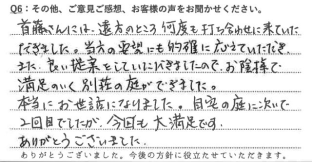 Q6：その他、ご意見ご感想、お客様の声をお聞かせください。
首藤さんには、遠方のところ何度も打ち合わせに来ていた
だきました。当方の要望にも的確に応えていただき、
また、良い提案をしていただきましたので、お陰様で
満足のいく別荘の庭ができました。
本当にお世話になりました。自宅の庭に次いで
2回目でしたが、今回も大満足です。
ありがとうございました。
ありがとうございました。今後の方針に役立たせていただきます。